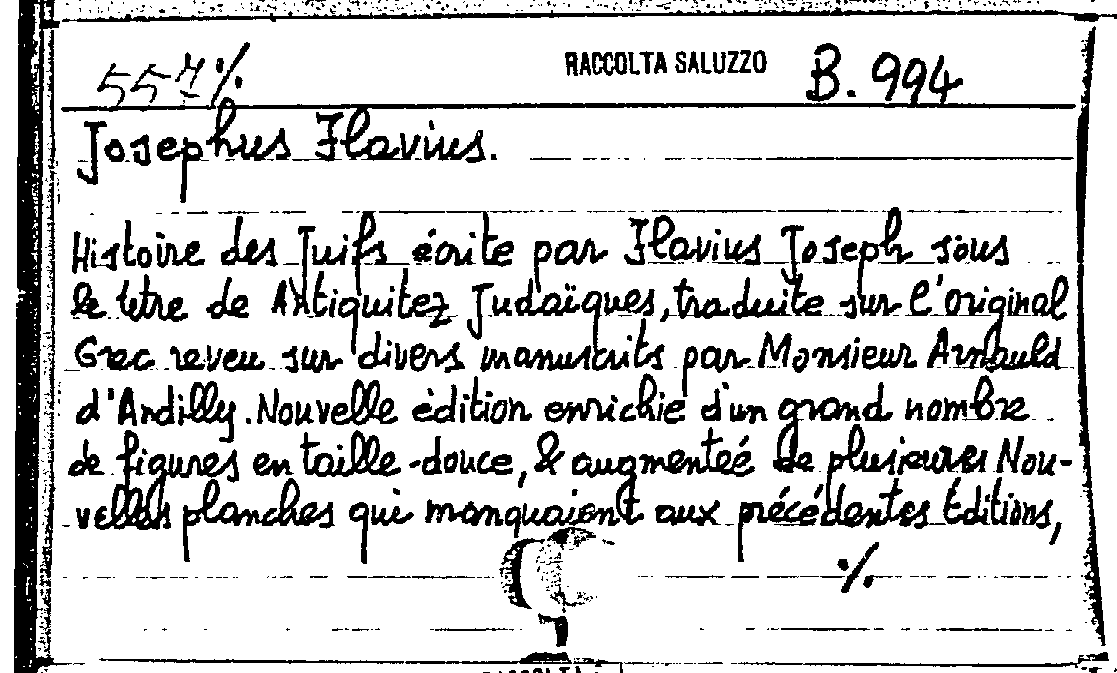 557 ·/. RACCOLTA SALUZZO B. 994
Josephus Flavius.
Histoire des Juifs écrite par Flavius Joseph sous
le titre de Antiquitez Judaïques, traduite sur l'original
Grec reveu sur divers manuscrits par Monsieur Arnauld
d'Andilly. Nouvelle édition enrichie d'un grand nombre
de figures en taille-douce, & augmenteé de plusieures Nou-
velles planches qui manquaient aux précédentes Éditions,
·/.